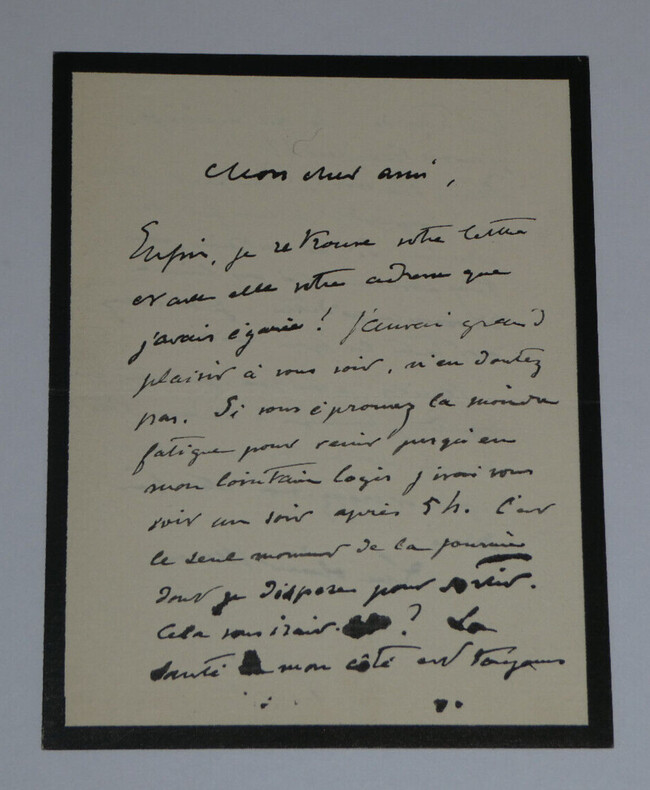 Mon cher ami,
Enfin, je retrouve votre lettre
et avec elle votre adresse que
j'avais égarée ! J'aurai grand
plaisir à vous voir, n'en doutez
pas. Si vous éprouvez la moindre
fatigue pour venir jusqu'en
mon lointain logis j'irai vous
voir un soir après 5 h. C'est
le seul moment de la journée
dont je dispose pour sortir.
Cela vous irait ? La
santé mon côté est toujours